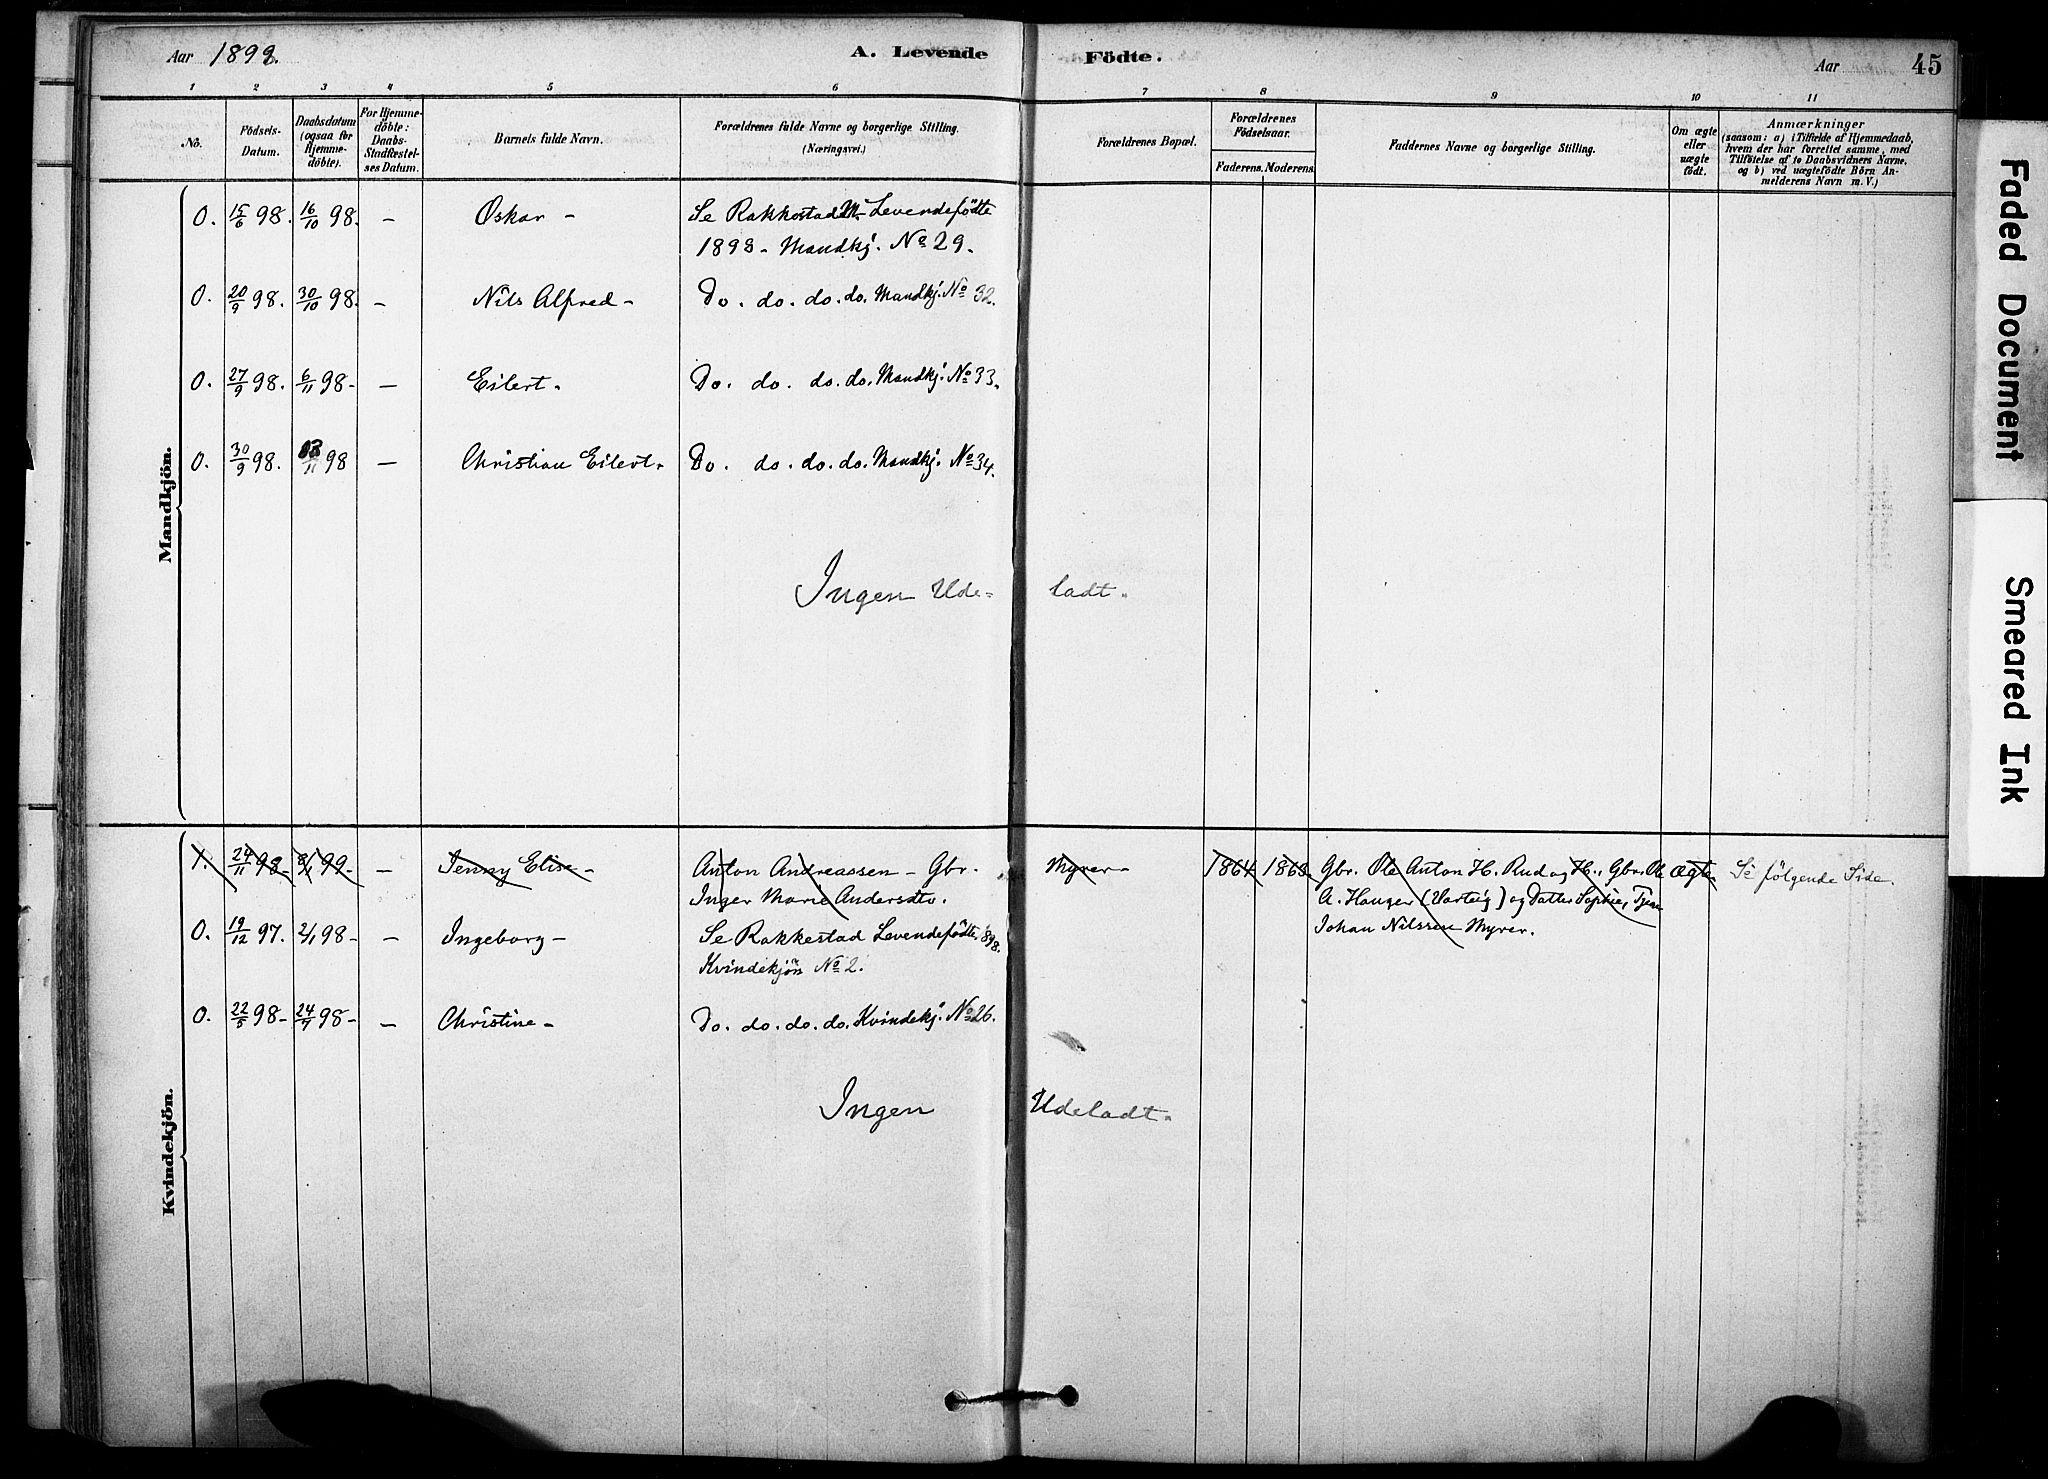 Aar 1898.
A. Levende Födte.
Aar
45
1 2 3 4 5 6 7 8 9 10 11
No.
Födsels-
Datum.
Daabsdatum
(ogsaa for
Hjemme-
döbte).
For Hjemme-
döbte:
Daabs-
Stadfæstel-
ses Datum.
Barnets fulde Navn.
Forældrenes fulde Navne og borgerlige Stilling.
(Næringsvei.)
Forældrenes Bopæl.
Forældrenes
Födselsaar.
Faderens. Moderens.
Faddernes Navne og borgerlige Stilling.
Om ægte
eller
uægte
födt.
Anmærkninger
(saasom: a) i Tilfælde af Hjemmedaab,
hvem der har forrettet samme, med
Tilföielse af to Daabsvidners Navne,
og b) ved uægtefödte Börn An-
melderens Navn m. V.)
Mandkjön.
0. 15/6 98. 16/10 98. – Oskar – Se Rakkestad M– Levendefödte
1898 – Mandkj. No 29.
0. 20/9 98. 30/10 98. – Nils Alfred – Do. do. do. do. Mandkj. No 32.
0. 27/9 98. 6/11 98 – – Eilert. Do. do. do. do. Mandkj. No 33.
0. 30/9 98. 13/11 98 – Christian Eilert. Do. do. do. do. Mandkj. No 34.
Ingen Ude- ladt.
Kvindekjön.
1. 24/11 98 – 8/1 99. – Jenny Elise – Anton Andreassen – Gbr. Myrer – 1864 1863 Gbr. Ole Anton H. Rud og H., Gbr. Ole Ægte Se fölgende Side.
Inger Marie Andersdtr. A. Hauger (Varteig) og Datter Sophie, Tjen
Johan Nilssen Myrer.
0. 19/12 97. 2/1 98 – – Ingeborg – Se Rakkestad Levendefödte 898.
Kvindekjön No 2.
0. 22/5 98 – 24/7 98 – – Christine – Do. do. do. do. Kvindekj. No 26.
Ingen Udeladt.
Faded Document
Smeared Ink